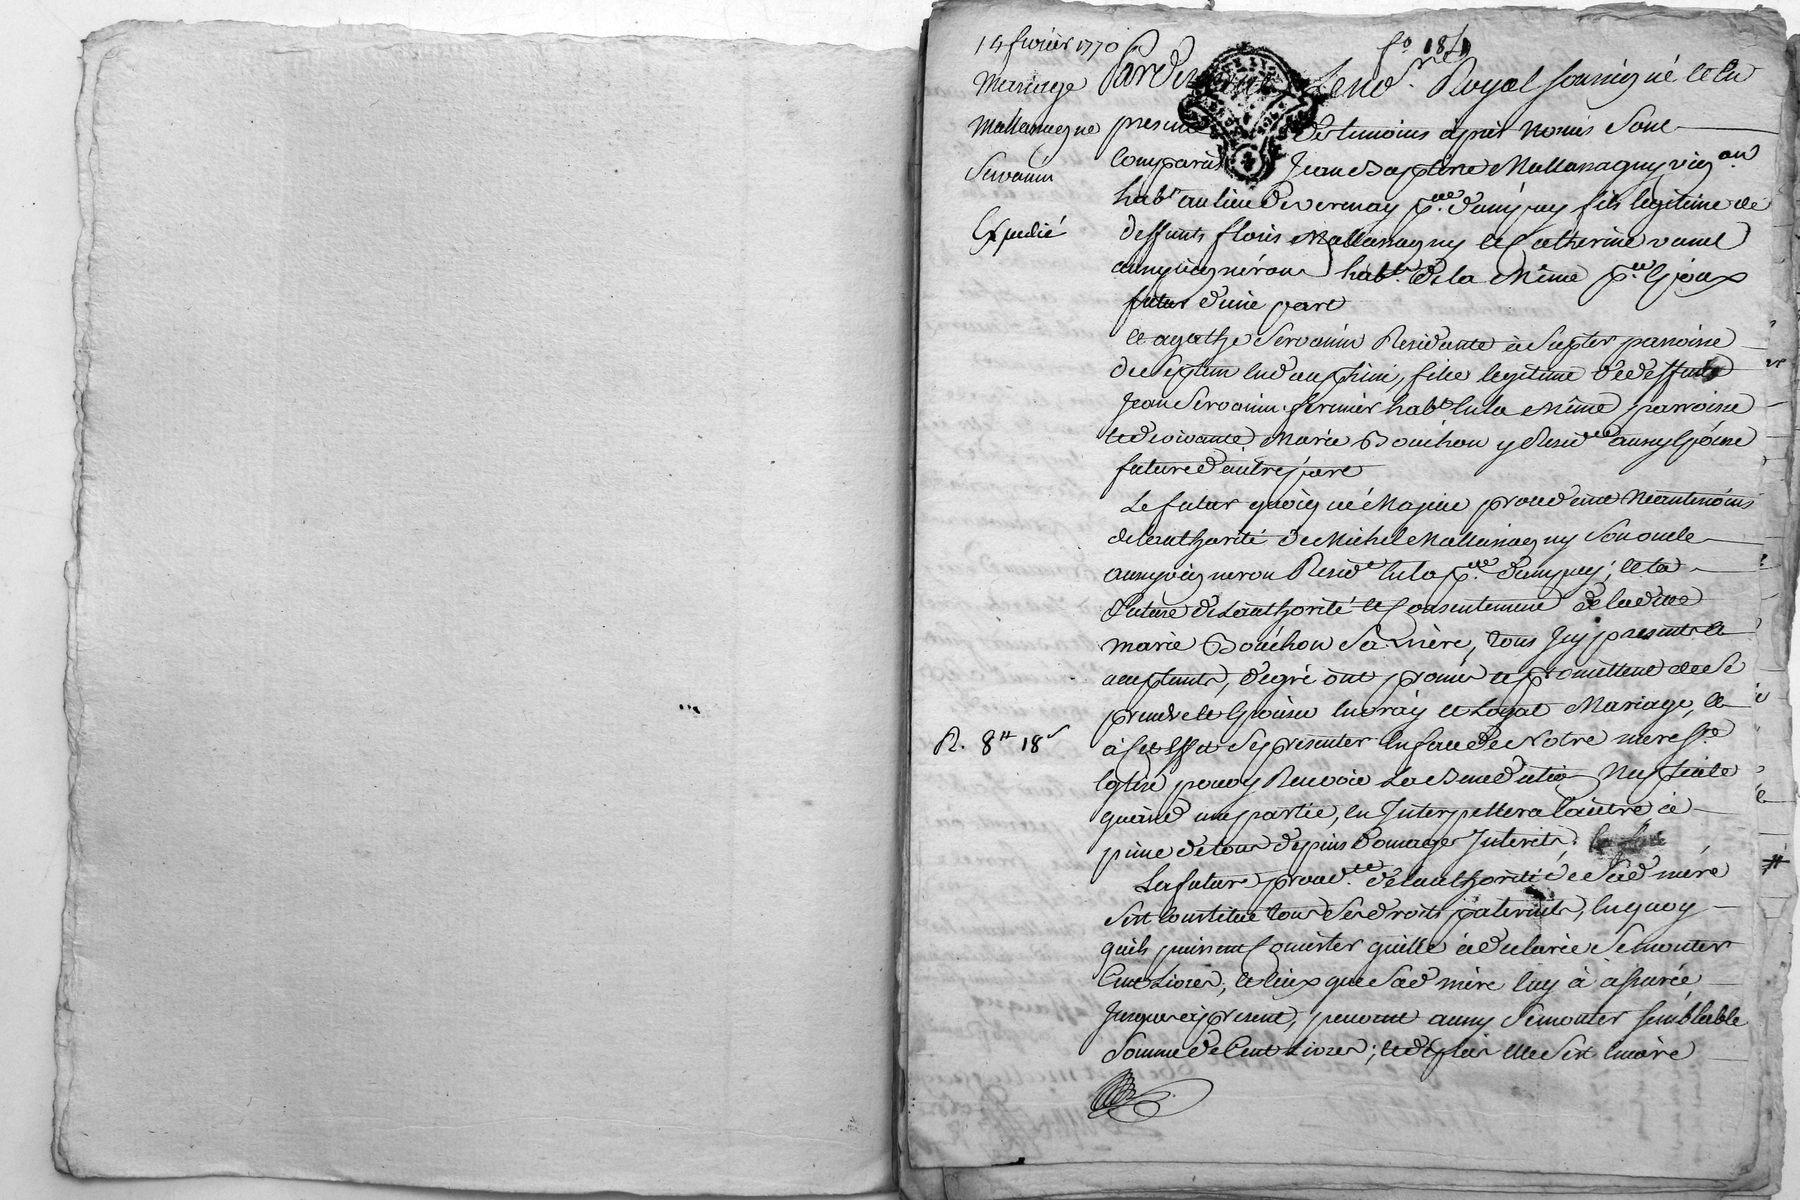 14 fevrier 1770
Mariage
Mallamagny
Servanin
Expedié
R. 8# 18s
fo 187
Pardevant Le nore Royal soussigné et en
presence des temoins àprès només sont
comparus Jean Baptiste Mallamagny vigon
habt au lieu de vernay psse dampuy fils legitime de
deffunts floris Mallamagny et Catherine vanel
aussy vignérons habts de la Même psse Epoux
futur d'une part
Et agathe Servanin Residante à Septer parroisse
de Septem en dauphiné, fille legitime de deffunt
Jean Servanin fermier habt en la Même parroisse
et de vivante Marie Bouchon y Residte aussy Epouse
future d'autre part
Le futur quoiqué Majeur procedant Neantmoins
de lauthorité de Michel Mallamagny Son oncle
aussy vigneron Residt en la psse dampuy; et la
future de Lauthorité et Consentement de ladite
marie Bouchon Sa Mère, tous Icy presents et
acceptants, de gré ont promis et promettent de Se
prendre et Epouser en vray et Loyal Mariage, et
à Cet Effet Se presenter en face de Notre mere Ste
Eglise pour y Recevoir La Benediction Nuptiale
quand une partie, en Interpellera L'autre à
peine de tous depens Domages Interets.
La future procedte de lauthorité de Sad mére
Sest Constitué tous Ses droits paternels, en quoy
quils puissent Consister quelle à declarée Se monter
Cent Livres, et Ceux que Sad mère luy à assurée
Jusques à present, peuvent aussy Se monter semblable
Somme de Cent Livres; et de plus elle Sest encore